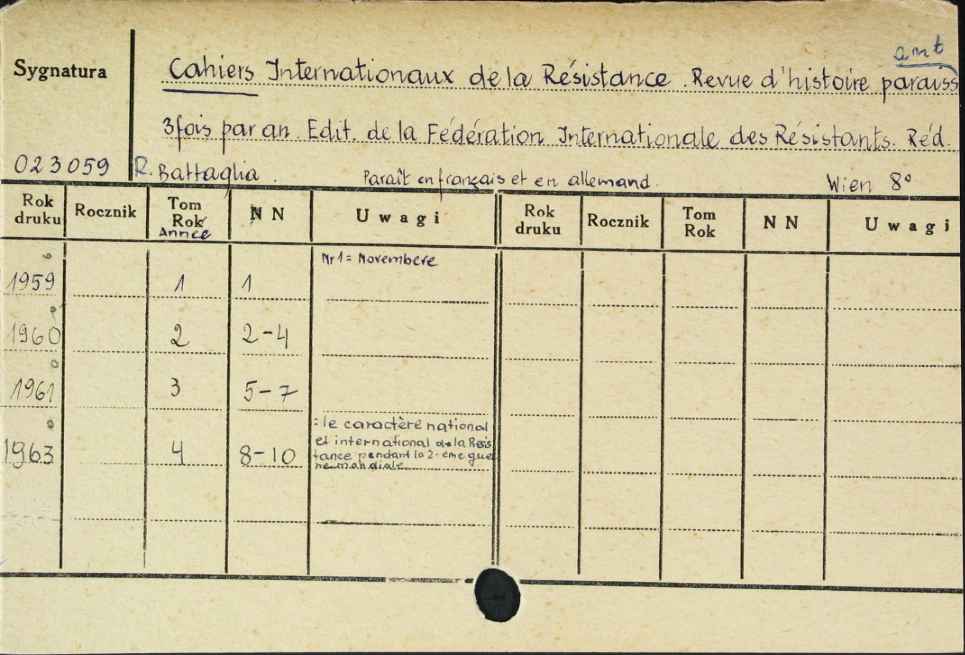 ant
Sygnatura
Cahiers Internationaux de la Résistance. Revue d'histoire paraiss
3 fois par an. Edit. de la Fédération Internationale des Résistants. Réd.
023059 R. Battaglia. Paraît en français et en allemand. Wien 8°
Rok druku Rocznik Tom Rok Année N N Uwagi Rok druku Rocznik Tom Rok N N Uwagi
Nr 1 = Novembere
1959 1 1
1960 2 2-4
1961 3 5-7
1963 4 8-10
: le caractère national
et international de la Résis
tance pendant la 2-ème gue
rre mondiale